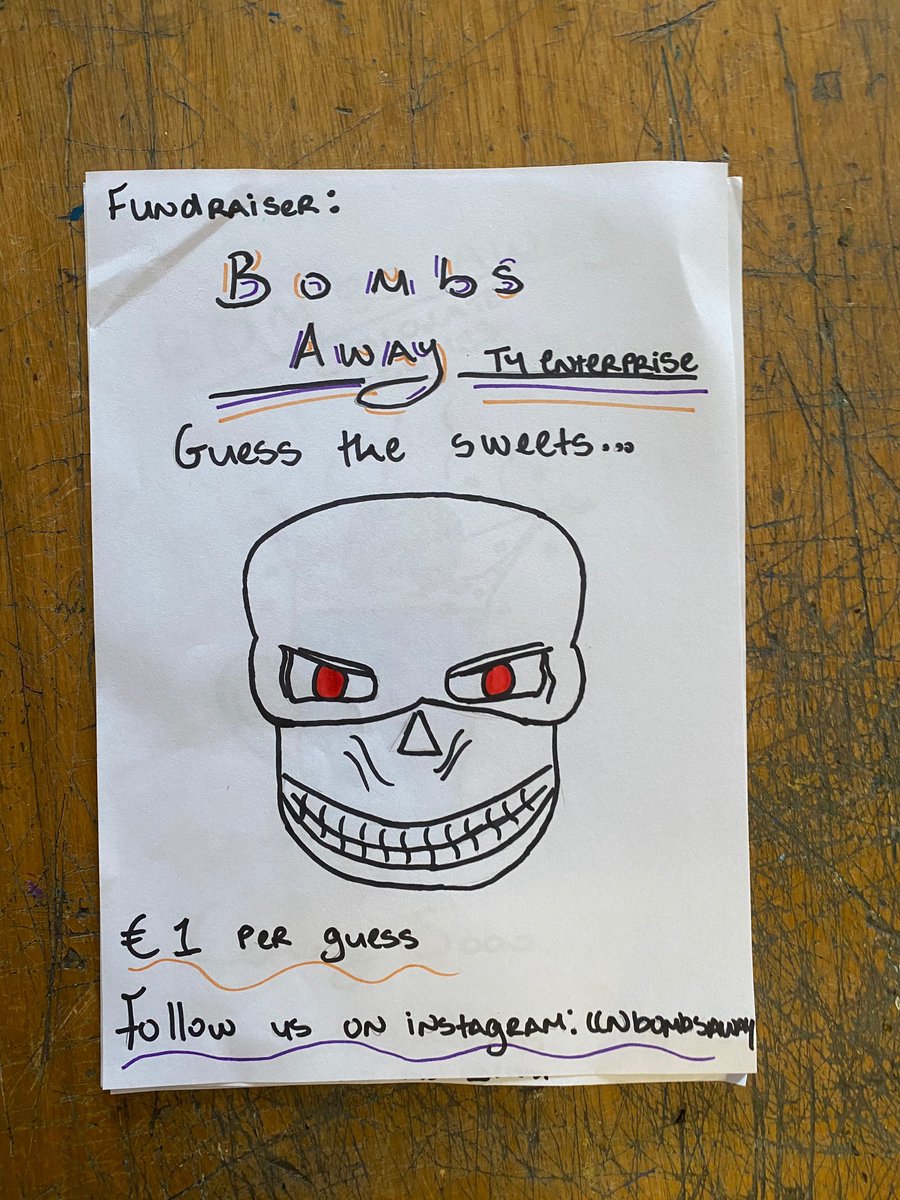 Fundraiser:
Bombs
Away TY Enterprise
Guess the sweets...
€1 per guess
Follow us on instagram: CCNbombsaway